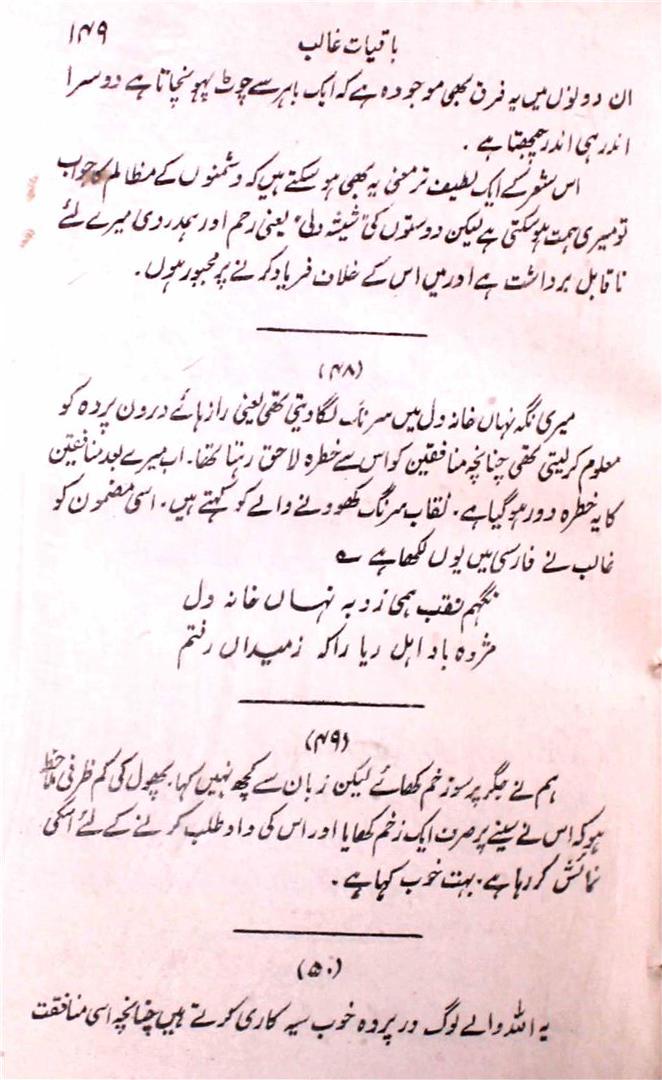 باقیات غالب
۱۴۹
ان دونوں میں یہ فرق بھی موجود ہے کہ ایک باہر سے چوٹ پہونچاتا ہے دوسرا
اندر ہی اندر چبھتا ہے۔
اس شعر کے ایک لطیف تر معنی یہ بھی ہو سکتے ہیں کہ دشمنوں کے مظالم کا جواب
تو میری ہمت ہو سکتی ہے لیکن دوستوں کی "شیشہ دلی" یعنی رحم اور ہمدردی میرے لئے
ناقابل برداشت ہے اور میں اس کے خلاف فریاد کرنے پر مجبور ہوں۔
(۴۸)
میری نگہ نہاں خانہ دل میں سرنگ لگا دیتی تھی یعنی رازہائے درون پردہ کو
معلوم کر لیتی تھی چنانچہ منافقین کو اس سے خطرہ لاحق رہتا تھا۔ اب میرے بعد منافقین
کا یہ خطرہ دور ہو گیا ہے۔ نقاب سرنگ کھودنے والے کو کہتے ہیں۔ اسی مضمون کو
غالب نے فارسی میں یوں لکھا ہے ؎
نگہم نقب ہمی زد بہ نہاں خانہ دل
مژدہ باد اہل ریا را کہ زمیداں رفتم
(۴۹)
ہم نے جگر پر سو زخم کھائے لیکن زبان سے کچھ نہیں کہا۔ پھول کی کم ظرفی ملاحظہ
ہو کہ اس نے سینے پر صرف ایک زخم کھایا اور اس کی داد طلب کرنے کے لئے اسکی
نمائش کر رہا ہے۔ بہت خوب کہا ہے۔
(۵۰)
یہ اللہ والے لوگ در پردہ خوب سیہ کاری کرتے ہیں چنانچہ اسی منافقت